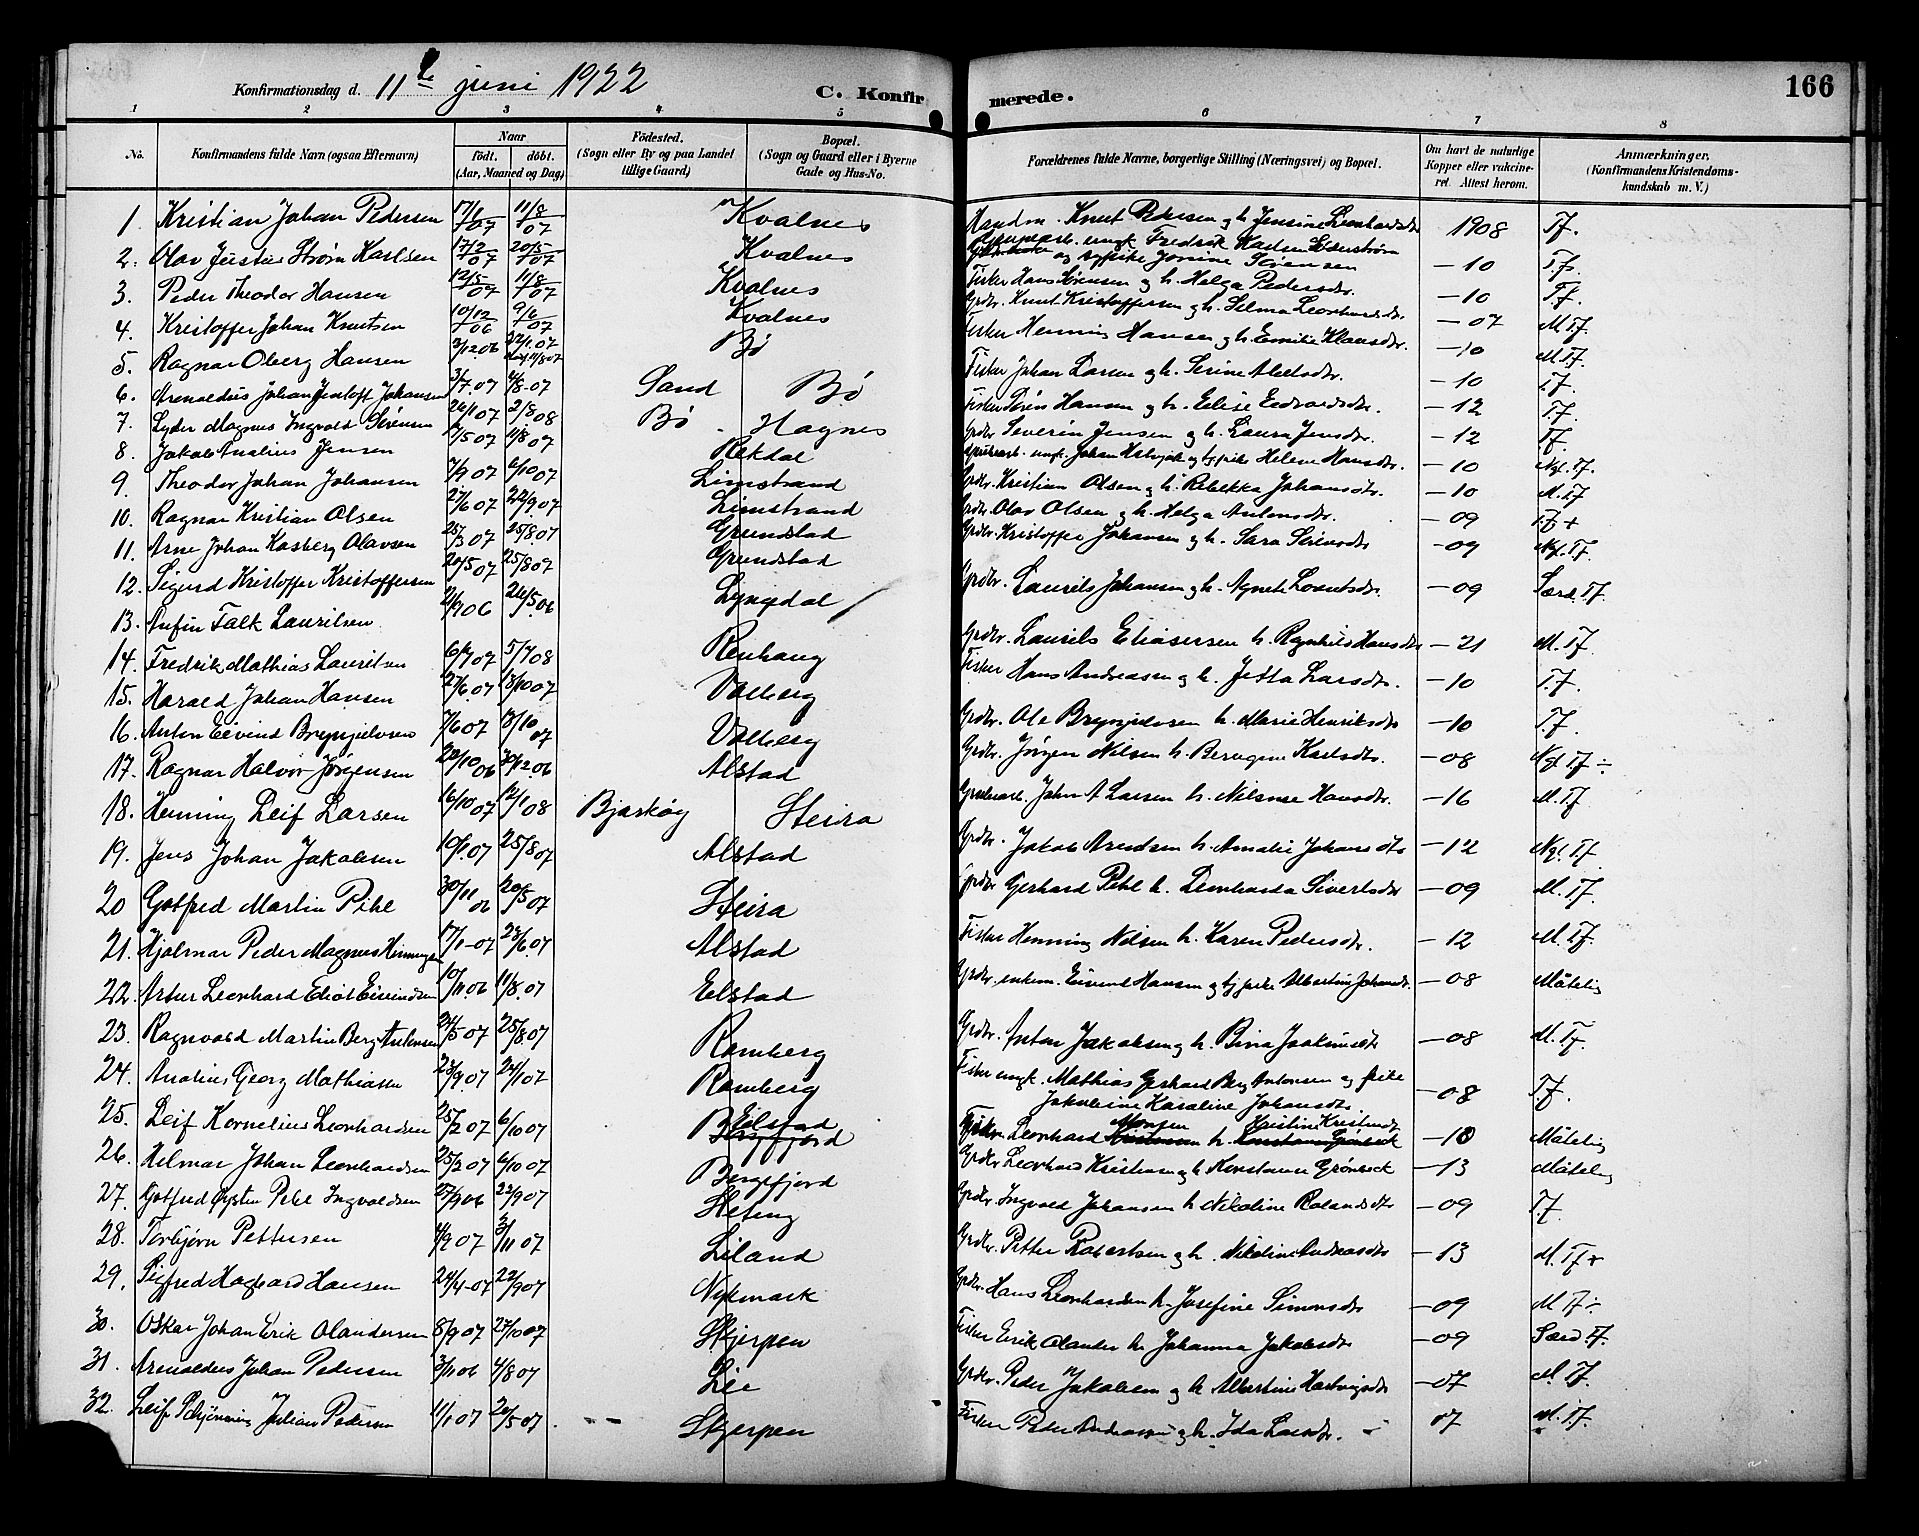 Konfirmationsdag d. 11te juni 1922 C. Konfirmerede. 166
1 2 3 4 5 6 7 8
No. Konfirmandens fulde Navn (ogsaa Efternavn) Naar født. døbt. (Aar, Maaned og Dag) Fødested. (Sogn eller By og paa Landet tillige Gaard) Bopæl. (Sogn og Gaard eller i Byerne Gade og Hus-No. Forældrenes fulde Navne, borgerlige Stilling (Næringsvei) og Bopæl. Om havt de naturlige Kopper eller vakcineret. Attest herom. Anmærkninger. (Konfirmandens Kristendomskundskab m. V.)
1. Kristian Johan Pedersen 11/8 07 Kvalnes Knut Pedersen g h. Jensine 1908 T.f.
2. Olav Justus Strøm Karlsen 17/2 07 20/5 07 Kvalnes Fredrik og Jonine Sørensen -10 T.f.
3. Peder Theodor Hansen 12/5 07 11/8 07 Kvalnes Fisker Hans Sørensen g h. Helga Pedersdr. -10 T.f.
4. Kristoffer Johan Knutsen 10/12 06 9/6 07 Kvalnes Grdbr. Knut Kristoffersen g h. Selma Leonhardsdr. -07 M T.f.
5. Ragnar Oberg Hansen 3/12 06 22/1.07 Bø Fisker Henning Hansen g h. Emilie Klausdr. -10 M T.f.
6. Arnoldus Johan Jentoft Johansen 3/7.07 4/8.07 Sand Bø Fisker Johan Larsen g h. Serine -10 T.f.
7. Lyder Magnus Ingvald Sørensen 26/1 07 2/8 08 Bø. Hagnes Fisker Sørin Hansen g h. Elise Edvardsdr. -12 T.f.
8. Jakob Analius Jensen 11/8 07 Rekdal Grdbr Severin Jensen g h. Laura Jensdr. -12 T.f.
9. Theodor Johan Johansen 7/9 07 6/10 07 Limstrand ungk. Johan Helene Hansdr. -10 Ngl. T.f.
10. Ragnar Kristian Olsen 27/6 07 22/9 07 Limstrand Grdbr. Kristian Olsen g h. Rebekka Johansdr. -10 M. T.f
11. Arne Johan Kasberg Olavsen 25/3 07 25/8 07 Grundstad Grdbr. Olav Olsen g h. Helga Antonsdr. -09 T.f +
12. Sigurd Kristoffer Kristoffersen 20/5 07 25/8 07 Grundstad Grdbr. Kristoffer Johansen g h. Sara -09 Ngl. T.f.
13. Anfin Falk Lauritsen 26/5.06 Lyngdal / Grdbr. Laurits Johansen g h. Agnete -09 Særd. T.f.
14. Fredrik Mathias Lauritsen 6/7 07 5/7 08 Renhaug Grdbr. Laurits Eliasersen h. Ragnhild Hansdr -21 M. T.f
15. Harald Johan Hansen 27/6.07 13/10 07 Valberg Fisker Hans Andreasen g h. Jetta Larsdr. -10 T.f.
16. Anton Eivind Brynjulvsen 7/6 07 13/10 07 Valberg Grdbr. Ole Brynjulvsen h. Marie Henriksdr -10 T.f.
17. Ragnar Halvor Jørgensen 20/10 06 30/12.06 Alstad Grdbr. Jørgen Nilsen h. Karlsdr. -08 Ngl T.f ÷
18. Henning Leif Larsen 16/10 07 12/1 08 Bjarkøy Steira John A Larsen h. Hansdr. -16 M. T.f
19. Jens Johan Jakobsen 10/1.07 25/8 07 Alstad Grdbr. Jakob Arntsen h. Amalie Johansdr -12 Ngl. T.f
20 Gotfred Martin Pihl 30/11 06 20/5 07 Steira Grdbr Gerhard Pihl h. Leonharda Sivertsdr -09 M. T.f.
21. Hjalmar Peder Magnus Henningsen 17/1-07 23/6.07 Alstad Fisker Henning Nilsen h. Karen Pedersdr. -12 M. T.f.
22. Artur Leonhard Eliot Eivindsen 10/11.06 11/8.07 Elstad Grdbr. enkem. Eivind Hansen og Albertine Johansdr. -08 Måtelig
23. Ragnvald Martin Berg Antonsen 24/5 07 25/8.07 Ramberg Grdbr. Anton Jakobsen g h. Bina Joakimsdr -08 M. T.f.
24. Analius Georg Mathiasen 23/9.07 24/1 07 Ramberg Fisker ungk. Mathias Gerhard Berg Antonsen og pike Jakobine Karoline Johansdr. -08 T.f.
25. Leif Kornelius Leonhardsen 25/2 07 6/10 07 Elstad Leonhard Monsen h. Kristine -10 Måtelig
26. Hilmar Johan Leonhardsen 25/2 07 6/10 07 Bergsfjord Grdbr Leonhard Kristiansen g h Konstanse Grønbeck -13 Måtelig
27. Gotfred Øystein Pihl Ingvaldsen 27/9 06 22/9 07 Steting Grdbr. Ingvald Johansen h Nikoline Rolandsdr -09 T.f.
28. Torbjørn Pettersen 4/9 07 3/11 07 Liland Grdbr. Petter Robertsen g h. Nikoline Andreasdr -13 M. T.f +
29. Sigfred Hagbard Hansen 24/4-07 22/9 07 Nykmark Grdbr. Hans Leonhardsen h. Josefine Simonsdr -09 M T.f ÷
30. Oskar Johan Erik Olandersen 8/9 07 27/10 07 Skjerpen Fisker Erik Olander h. Johanna Jakobsdr -09 Særd T.f.
31. Arnoldus Johan Pedersen 3/11 06 4/8 07 Lie Grdbr. Peder Jakobsen g h Albertine Hartvigsdr -07 M. T.f.
32. Leif Julian Pedersen 11/1 07 20/5 07 Skjerpen Fisker Peder Andreassen g h. Ida Larsdr. 07 M. T.f.